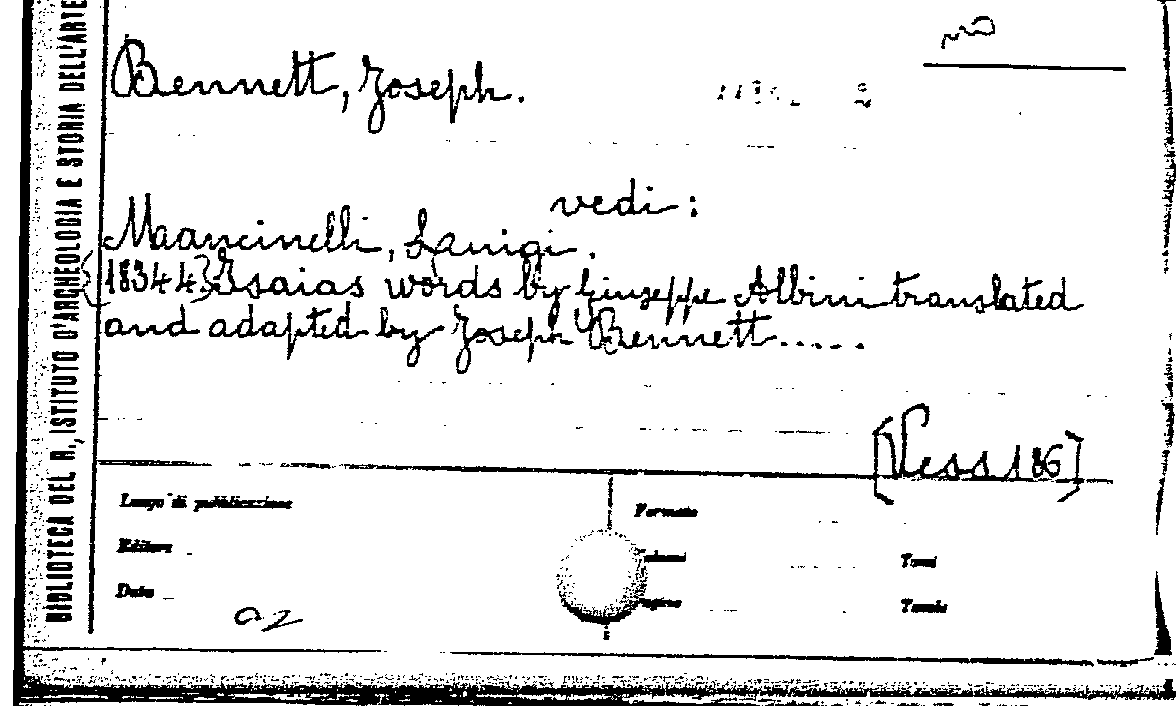 BIBLIOTECA DEL R. ISTITUTO D'ARCHEOLOGIA E STORIA DELL'ARTE
Bennett, Joseph.
vedi:
Maancinelli, Lauigi.
{18344} Isaias words by Giuseppe Albini translated
and adapted by Joseph Bennett.....
[Vess 186]
Luogo di pubblicazione
Formato
Editore
Volumi
Tomi
Data
Pagine
Tavole